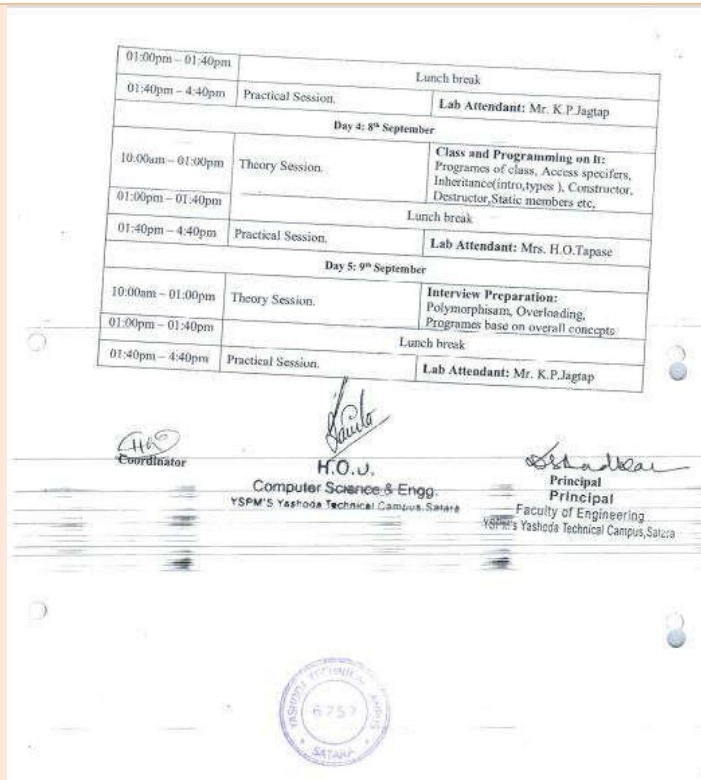 01:00pm – 01:40pm Lunch break
01:40pm – 4:40pm Practical Session. Lab Attendant: Mr. K.P.Jagtap
Day 4: 8th September
10:00am – 01:00pm Theory Session. Class and Programming on It:
Programes of class, Access specifers,
Inheritance(intro,types ), Constructor,
Destructor,Static members etc,
01:00pm – 01:40pm Lunch break
01:40pm – 4:40pm Practical Session. Lab Attendant: Mrs. H.O.Tapase
Day 5: 9th September
10:00am – 01:00pm Theory Session. Interview Preparation:
Polymorphisam, Overloading,
Programes base on overall concepts
01:00pm – 01:40pm Lunch break
01:40pm – 4:40pm Practical Session. Lab Attendant: Mr. K.P.Jagtap
Coordinator
H.O.D.
Computer Science & Engg.
YSPM'S Yashoda Technical Campus, Satara
Principal
Principal
Faculty of Engineering
YSPM's Yashoda Technical Campus,Satara
YASHODA TECHNICAL CAMPUS
6757
SATARA